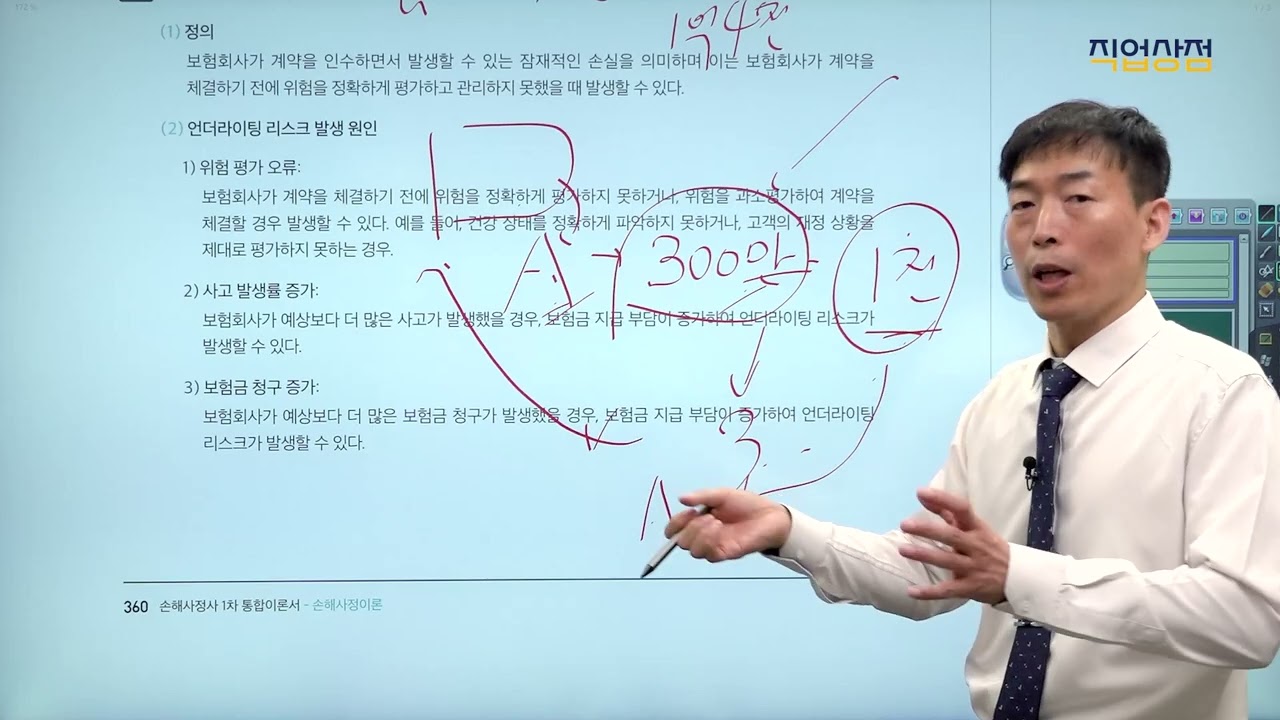 1억4천
직업상점
(1) 정의
보험회사가 계약을 인수하면서 발생할 수 있는 잠재적인 손실을 의미하며 이는 보험회사가 계약을
체결하기 전에 위험을 정확하게 평가하고 관리하지 못했을 때 발생할 수 있다.
(2) 언더라이팅 리스크 발생 원인
1) 위험 평가 오류:
보험회사가 계약을 체결하기 전에 위험을 정확하게 평가하지 못하거나, 위험을 과소평가하여 계약을
체결할 경우 발생할 수 있다. 예를 들어, 건강 상태를 정확하게 파악하지 못하거나, 고객의 재정 상황을
제대로 평가하지 못하는 경우.
A 300만 1천
2) 사고 발생률 증가:
보험회사가 예상보다 더 많은 사고가 발생했을 경우, 보험금 지급 부담이 증가하여 언더라이팅 리스크가
발생할 수 있다.
3) 보험금 청구 증가:
보험회사가 예상보다 더 많은 보험금 청구가 발생했을 경우, 보험금 지급 부담이 증가하여 언더라이팅
리스크가 발생할 수 있다.
A
360 손해사정사 1차 통합이론서 - 손해사정이론